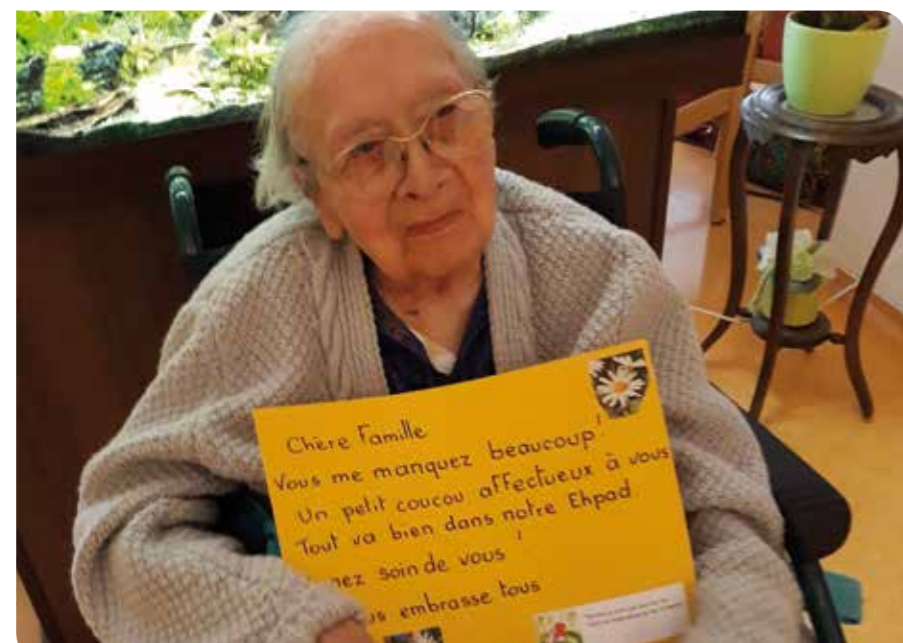 Chère Famille
Vous me manquez beaucoup !
Un petit coucou affectueux à vous
Tout va bien dans notre Ehpad.
nez soin de vous !
us embrasse tous